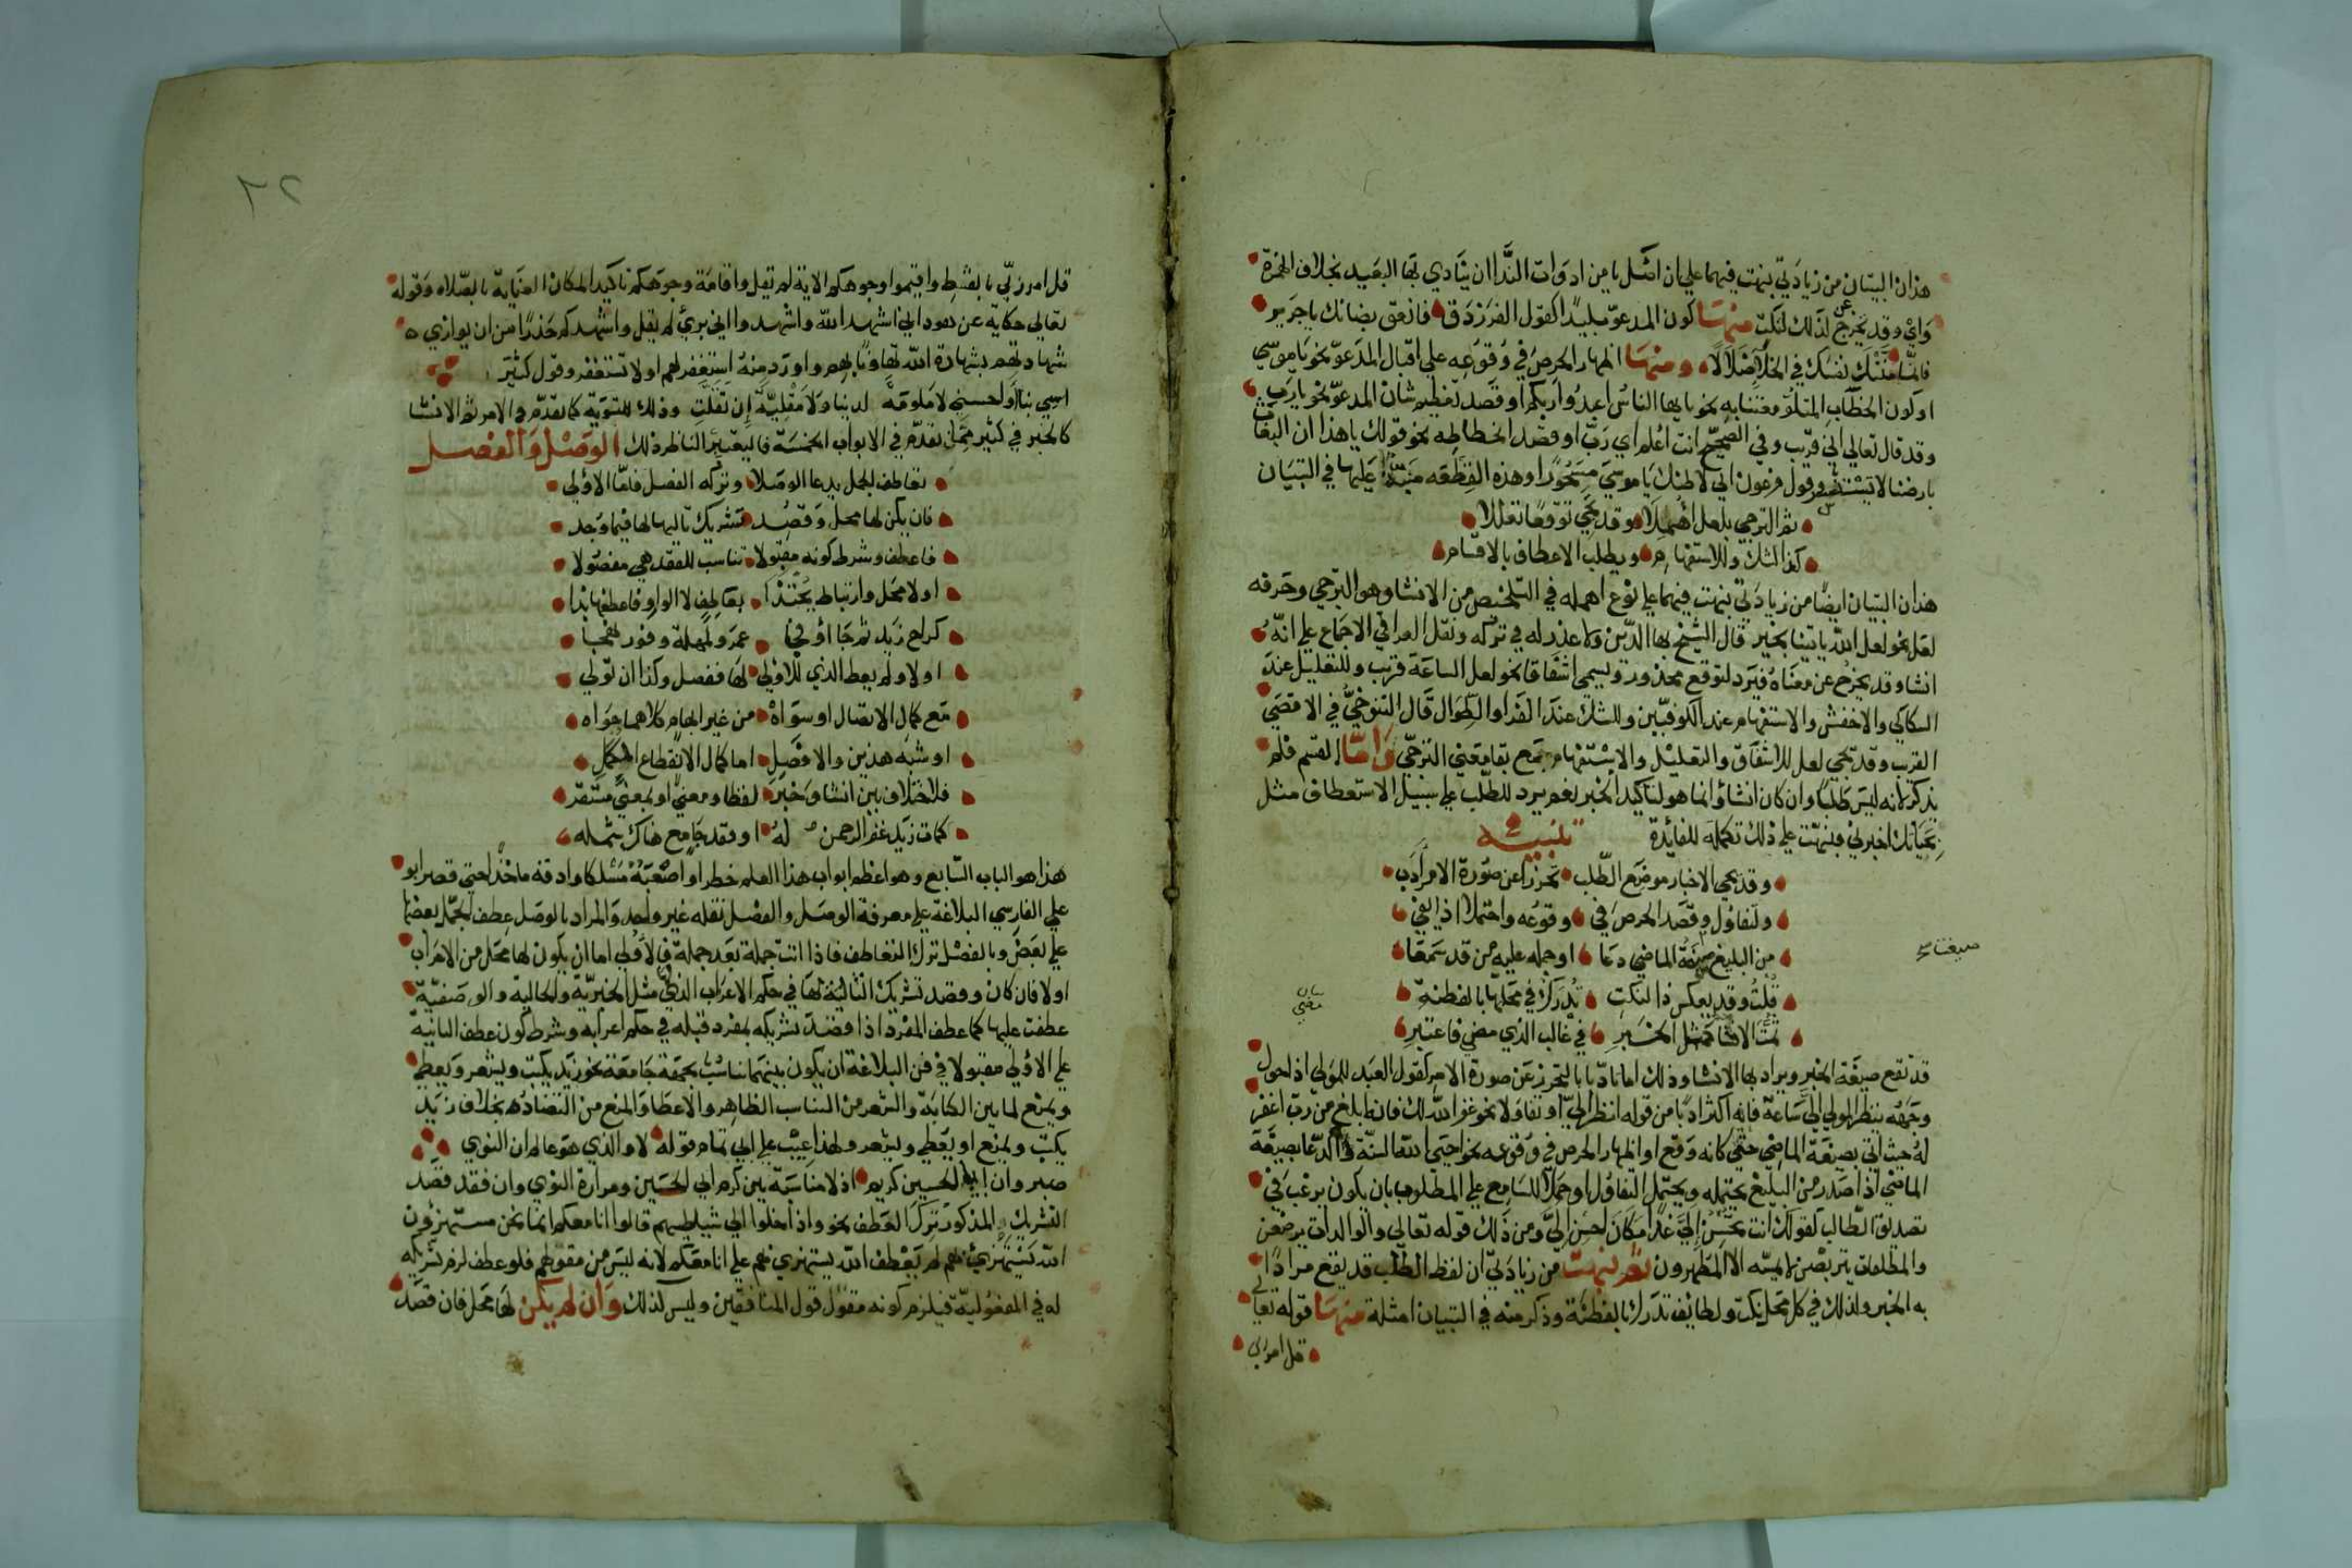 هذان البيتان من زيادتي نبهت فيهما علي ان اصل يا من ادوات الندا ان ينادي بها البعيد بخلاف الهمزة
واي وقد يخرج عن ذلك لنكت منها كون المدعو بليدا كقول الفرزدق فانعق بضانك يا جرير
فانما منتك نفسك في الخلا ضلالا ومنها اظهار الحرص في وقوعه علي اقبال المدعو نحو يا موسي
او كون الخطاب المتلو معتنا به نحو يا ايها الناس اعبدوا ربكم او قصد تعظيم شان المدعو نحو يا رب
وقد قال تعالي اني قريب وفي الصحيح انت اعلم اي رب او قصد انحطاطه نحو قولك يا هذا ان البغاث
بارضنا لا يستنسر وقول فرعون اني لاظنك يا موسي مسحورا وهذه القطعه منبه عليها في التبيان
ثم الترجي بلعل اهملا وقد يجي توقعا تعللا
كذا لشك وللاستفهام ويطلب الاعطاف بالاقسام
هذان البيتان ايضا من زيادتي نبهت فيهما علي نوع اهمله في التلخيص من الانشا وهو الترجي وحرفه
لعل نحو لعل الله ياتينا بخير قال الشيخ بها الدين ولا عذر له في تركه ونقل القرافي الاجماع علي انه
انشا وقد يخرج عن معناه فيرد لتوقع محذور ويسمي اشفاقا نحو لعل الساعة قريب وللتعليل عند
السكاكي والاخفش والاستفهام عند الكوفيين وللشك عند الفرا والطوال قال التنوخي في الاقصي
القريب وقد تجي لعل للاشفاق والتعليل والاستفهام مع بقا معني الترجي واما القسم فلم
يذكر لانه ليس طلبا وان كان انشا وانما هو لتاكيد الخبر نعم يرد للطلب علي سبيل الاستعطاف مثل
بحياتك اخبرني فنبهت علي ذلك تكملة للفائدة تنبيه
وقد يجي الاخبار موضع الطلب تحرزا عن صورة الامر ادب
ولتفاول وقصد الحرص في وقوعه واحتملا اذا يفي
من البليغ صيغة الماضي دعا او حمله عليه من قد سمعا
صيغتا صح
قلت وقد يعكس ذا لنكت تدرك في محلها بالفطنة
بيان مضي
ثمت الانشا كمثل الخبر في غالب الذي مضي فاعتبر
قد تقع صيغة الخبر ويراد بها الانشا وذلك اما تادبا بالتحرز عن صورة الامر كقول العبد للمولي اذا حول
وجهه ينظر المولي الي ساعة فانه اكثر ادبا من قوله انظر الي او تفاولا نحو غفر الله لك فانه ابلغ من رب اغفر
له حيث اتي بصيغة الماضي حتي كانه وقع او اظهار الحرص في وقوعه نحو احيي الله السنة والدعا بصيغة
الماضي اذا صدر من البليغ يحتمله ويحتمل التفاول او حملا للسامع علي المطلوب بان يكون يرغب في
تصديق الطالب كقولك انت تحسن الي غدا مكان احسن الي ومن ذلك قوله تعالي والوالدات يرضعن
والمطلقات يتربصن لا يمسه الا المطهرون ثم نبهت من زيادتي ان لفظ الطلب قد يقع مرادا
به الخبر وذلك في كل محل نكت ولطائف تدرك بالفطنة وذكر منه في التبيان امثلة منها قوله تعالي
قل امر ربي
٢٦
قل امر ربي بالقسط واقيموا وجوهكم الاية لم يقل واقامة وجوهكم تاكيدا لمكان العناية بالصلاه وقوله
تعالي حكاية عن هود اني اشهد الله واشهدوا اني بريء لم يقل واشهدكم حذرا من ان يوازي
شهادتهم بشهادة الله تهاونا بهم واورد منه استغفر لهم او لا تستغفر وقول كثير
اسيي بنا او احسني لا ملومة لدينا ولا مقلية ان تقلت وذلك للتسوية كما تقدم في الامر ثم الانشا
كالخبر في كثير مما تقدم في الابواب الخمسة فليعتبر الناظر ذلك الوصل والفصل
تعاطف الجمل يدعا الوصلا وتركه الفصل فاما الاولي
فان يكن لها محل وقصد تشريك تاليها لها فيما وجد
فاعطف وشرط كونه مقبولا تناسب للفقد هي مفصولا
او لا محل وارتباط يحتذا بعاطف لا الواو فاعطفها بذا
كراح زيد ثم جا او في عمرو لمهلة وفور لهجا
او لا ولم يعط الذي للاولي لها ففصل وكذا ان تولي
مع كمال الاتصال او سواه من غير ايهام كلاهما حواه
او شبه هذين والا فصل اما كمال الانقطاع المكمل
فلاختلاف بين انشا وخبر لفظا ومعني او لمعني مستقر
كمات زيد غفر الرحمن له او فقد جامع هناك شمله
هذا هو الباب السابع وهو اعظم ابواب هذا العلم خطرا واصعبه مسلكا وادقه ماخذا حتي قصر ابو
علي الفارسي البلاغة علي معرفة الوصل والفصل نقله غير واحد والمراد بالوصل عطف الجمل بعضها
علي بعض وبالفصل ترك التعاطف فاذا اتت جملة بعد جملة فالاولي اما ان يكون لها محل من الاعراب
او لا فان كان وقصد تشريك الثانية لها في حكم الاعراب الذي لها مثل الخبرية والحالية والوصفية
عطفت عليها كما عطف المفرد اذا قصد تشريكه بمفرد قبله في حكم اعرابه وشرط كون عطف الثانية
علي الاولي مقبولا في فن البلاغة ان يكون بينهما تناسب بجهة جامعة نحو زيد يكتب ويشعر ويعطي
ويمنع لما بين الكتابة والشعر من التناسب الظاهر والاعطا والمنع من التضاد بخلاف زيد
يكتب ويمنع او يعطي ويشعر ولهذا عيب علي ابي تمام قوله لا والذي هو عالم ان النوي
صبر وان ابا الحسين كريم اذ لا مناسبة بين كرم ابي الحسين ومرارة النوي وان فقد قصد
التشريك المذكور ترك العطف نحو واذا خلوا الي شياطينهم قالوا انا معكم انما نحن مستهزؤن
الله يستهزيء بهم لم يعطف الله يستهزي بهم علي انا معكم لانه ليس من مقولهم فلو عطف لزم تشريكه
له في المفعولية فيلزم كونه مقول قول المنافقين وليس كذلك وان لم يكن لها محل فان قصد